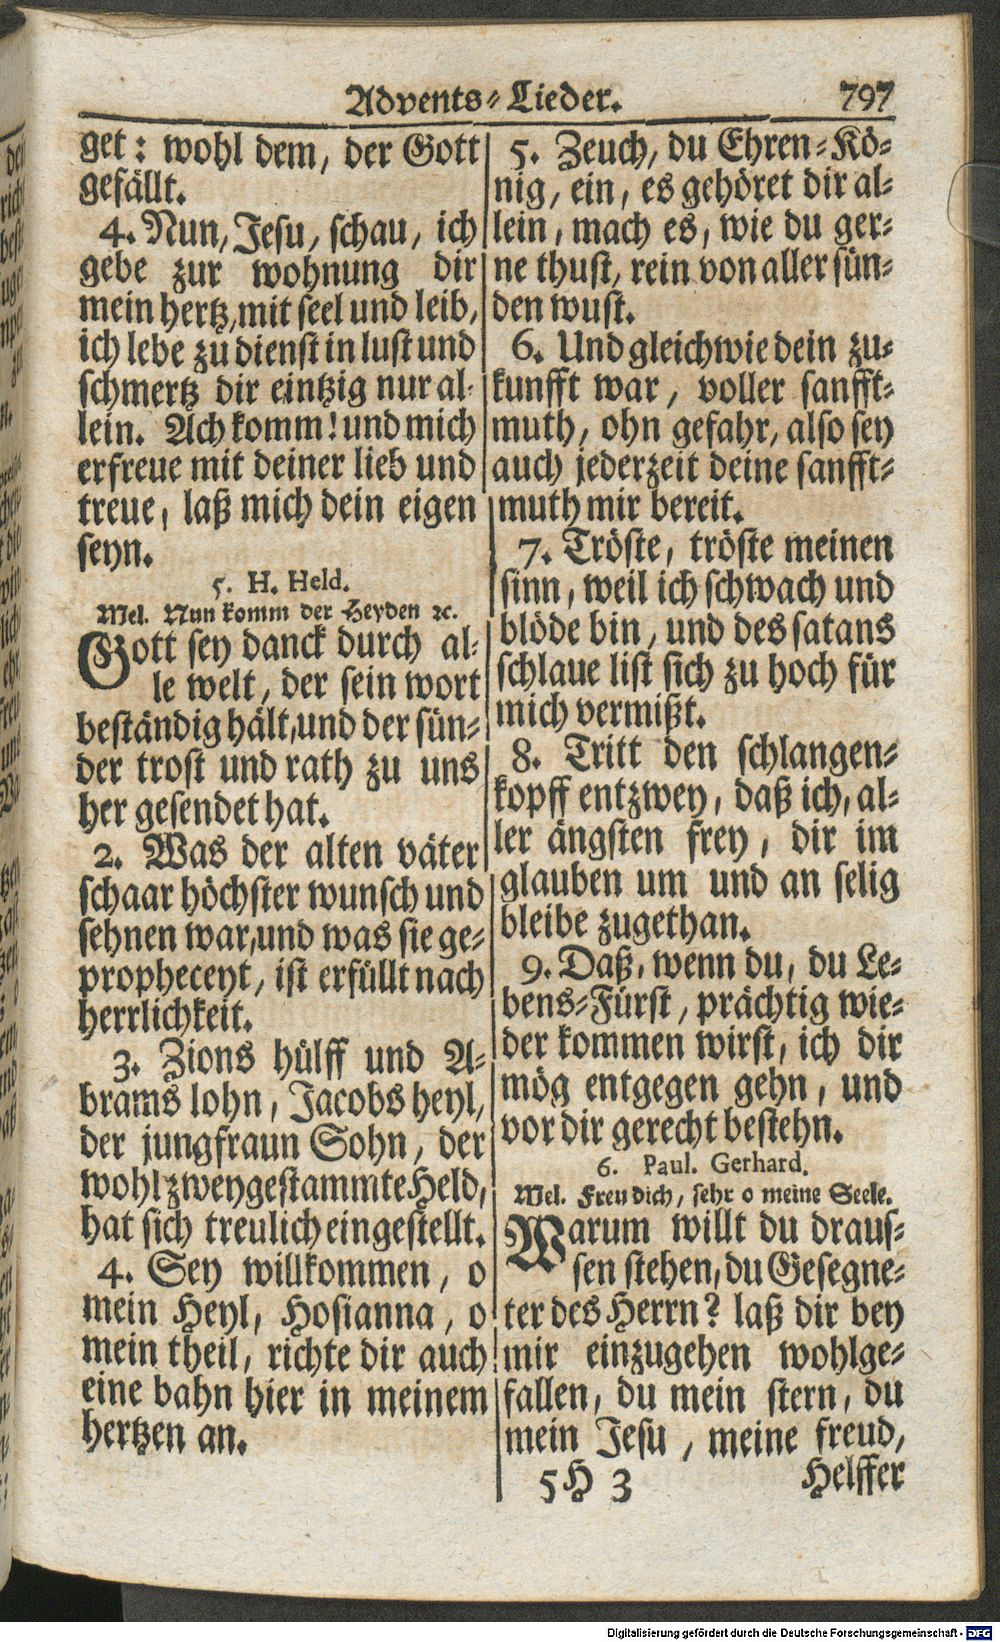 Advents-Lieder. 797
get: wohl dem, der Gott
gefällt.
4. Nun, Jesu, schau, ich
gebe zur wohnung dir
mein hertz, mit seel und leib,
ich lebe zu dienst in lust und
schmertz dir eintzig nur al-
lein. Ach komm! und mich
erfreue mit deiner lieb und
treue, laß mich dein eigen
seyn.
5. H. Held.
Mel. Nun komm der Heyden ꝛc.
Gott sey danck durch al-
le welt, der sein wort
beständig hält, und der sün-
der trost und rath zu uns
her gesendet hat.
2. Was der alten väter
schaar höchster wunsch und
sehnen war, und was sie ge-
propheceyt, ist erfüllt nach
herrlichkeit.
3. Zions hülff und A-
brams lohn, Jacobs heyl,
der jungfraun Sohn, der
wohl zweygestammte Held,
hat sich treulich eingestellt.
4. Sey willkommen, o
mein Heyl, Hosianna, o
mein theil, richte dir auch
eine bahn hier in meinem
hertzen an.
5. Zeuch, du Ehren-Kö-
nig, ein, es gehöret dir al-
lein, mach es, wie du ger-
ne thust, rein von aller sün-
den wust.
6. Und gleichwie dein zu-
kunfft war, voller sanfft-
muth, ohn gefahr, also sey
auch jederzeit deine sanfft-
muth mir bereit.
7. Tröste, tröste meinen
sinn, weil ich schwach und
blöde bin, und des satans
schlaue list sich zu hoch für
mich vermißt.
8. Tritt den schlangen-
kopff entzwey, daß ich, al-
ler ängsten frey, dir im
glauben um und an selig
bleibe zugethan.
9. Daß, wenn du, du Le-
bens-Fürst, prächtig wie-
der kommen wirst, ich dir
mög entgegen gehn, und
vor dir gerecht bestehn.
6. Paul. Gerhard.
Mel. Freu dich, sehr o meine Seele.
Warum willt du draus-
sen stehen, du Gesegne-
ter des Herrn? laß dir bey
mir einzugehen wohlge-
fallen, du mein stern, du
mein Jesu, meine freud,
5H 3 Helffer
Digitalisierung gefördert durch die Deutsche Forschungsgemeinschaft - DFG